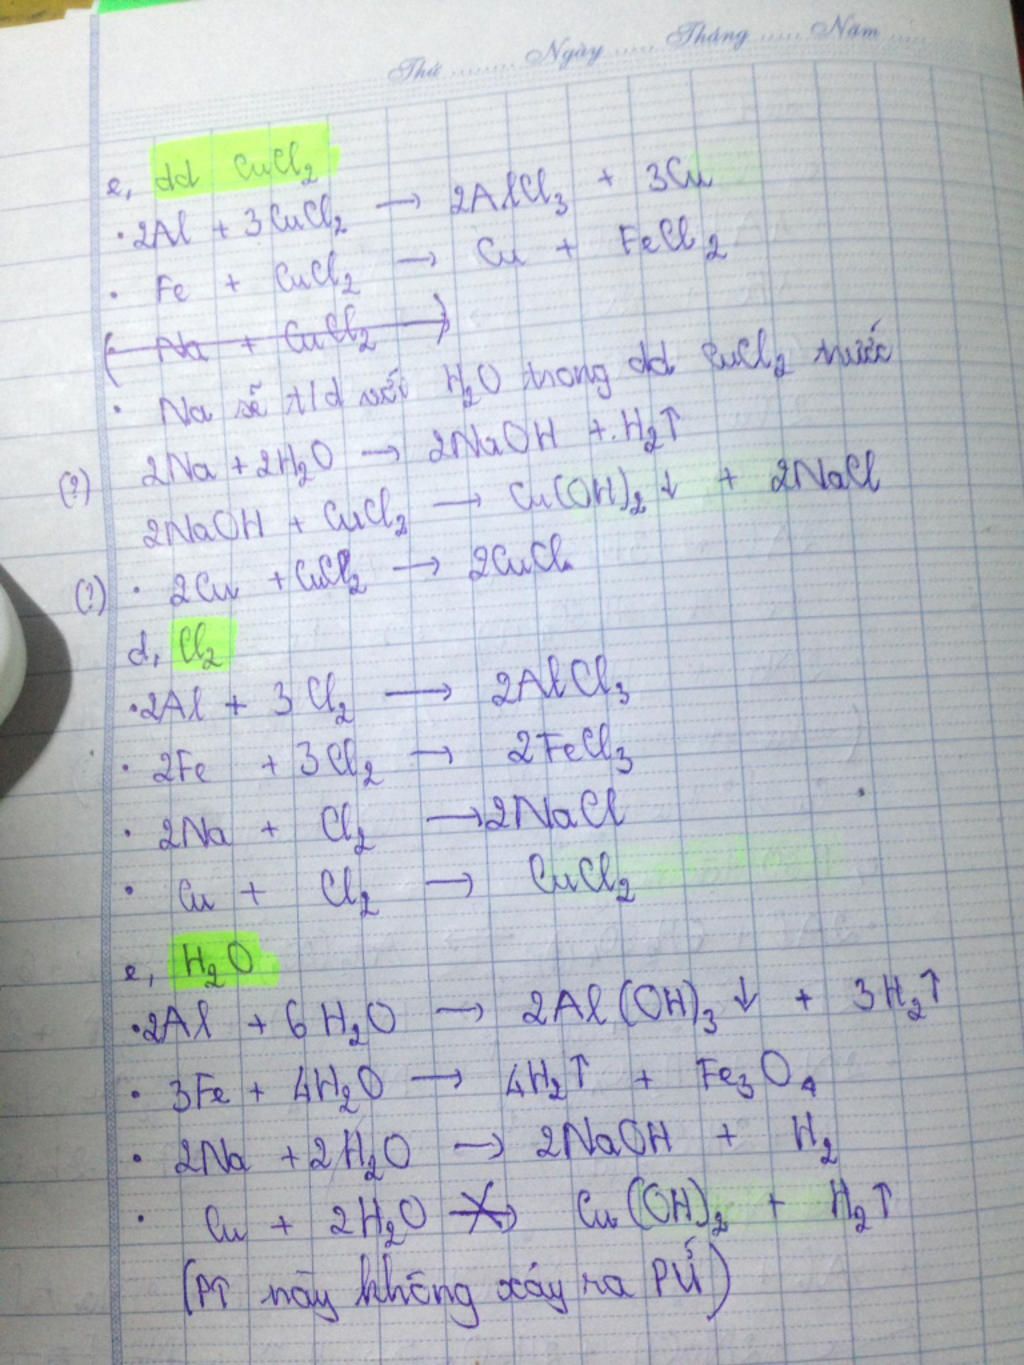 Thứ ........ Ngày ...... Tháng ...... Năm ......
c, dd CuCl₂
• 2Al + 3CuCl₂ → 2AlCl₃ + 3Cu
• Fe + CuCl₂ → Cu + FeCl₂
( Na + CuCl₂ )
• Na sẽ t/d với H₂O trong dd CuCl₂ trước
2Na + 2H₂O → 2NaOH + H₂↑
(?) 2NaOH + CuCl₂ → Cu(OH)₂↓ + 2NaCl
(?) • 2Cu + CuCl₂ → 2CuCl
d, Cl₂
• 2Al + 3Cl₂ → 2AlCl₃
• 2Fe + 3Cl₂ → 2FeCl₃
• 2Na + Cl₂ → 2NaCl
• Cu + Cl₂ → CuCl₂
e, H₂O
• 2Al + 6H₂O → 2Al(OH)₃↓ + 3H₂↑
• 3Fe + 4H₂O → 4H₂↑ + Fe₃O₄
• 2Na + 2H₂O → 2NaOH + H₂
• Cu + 2H₂O ↛ Cu(OH)₂ + H₂↑
(PT này không xảy ra PỨ)